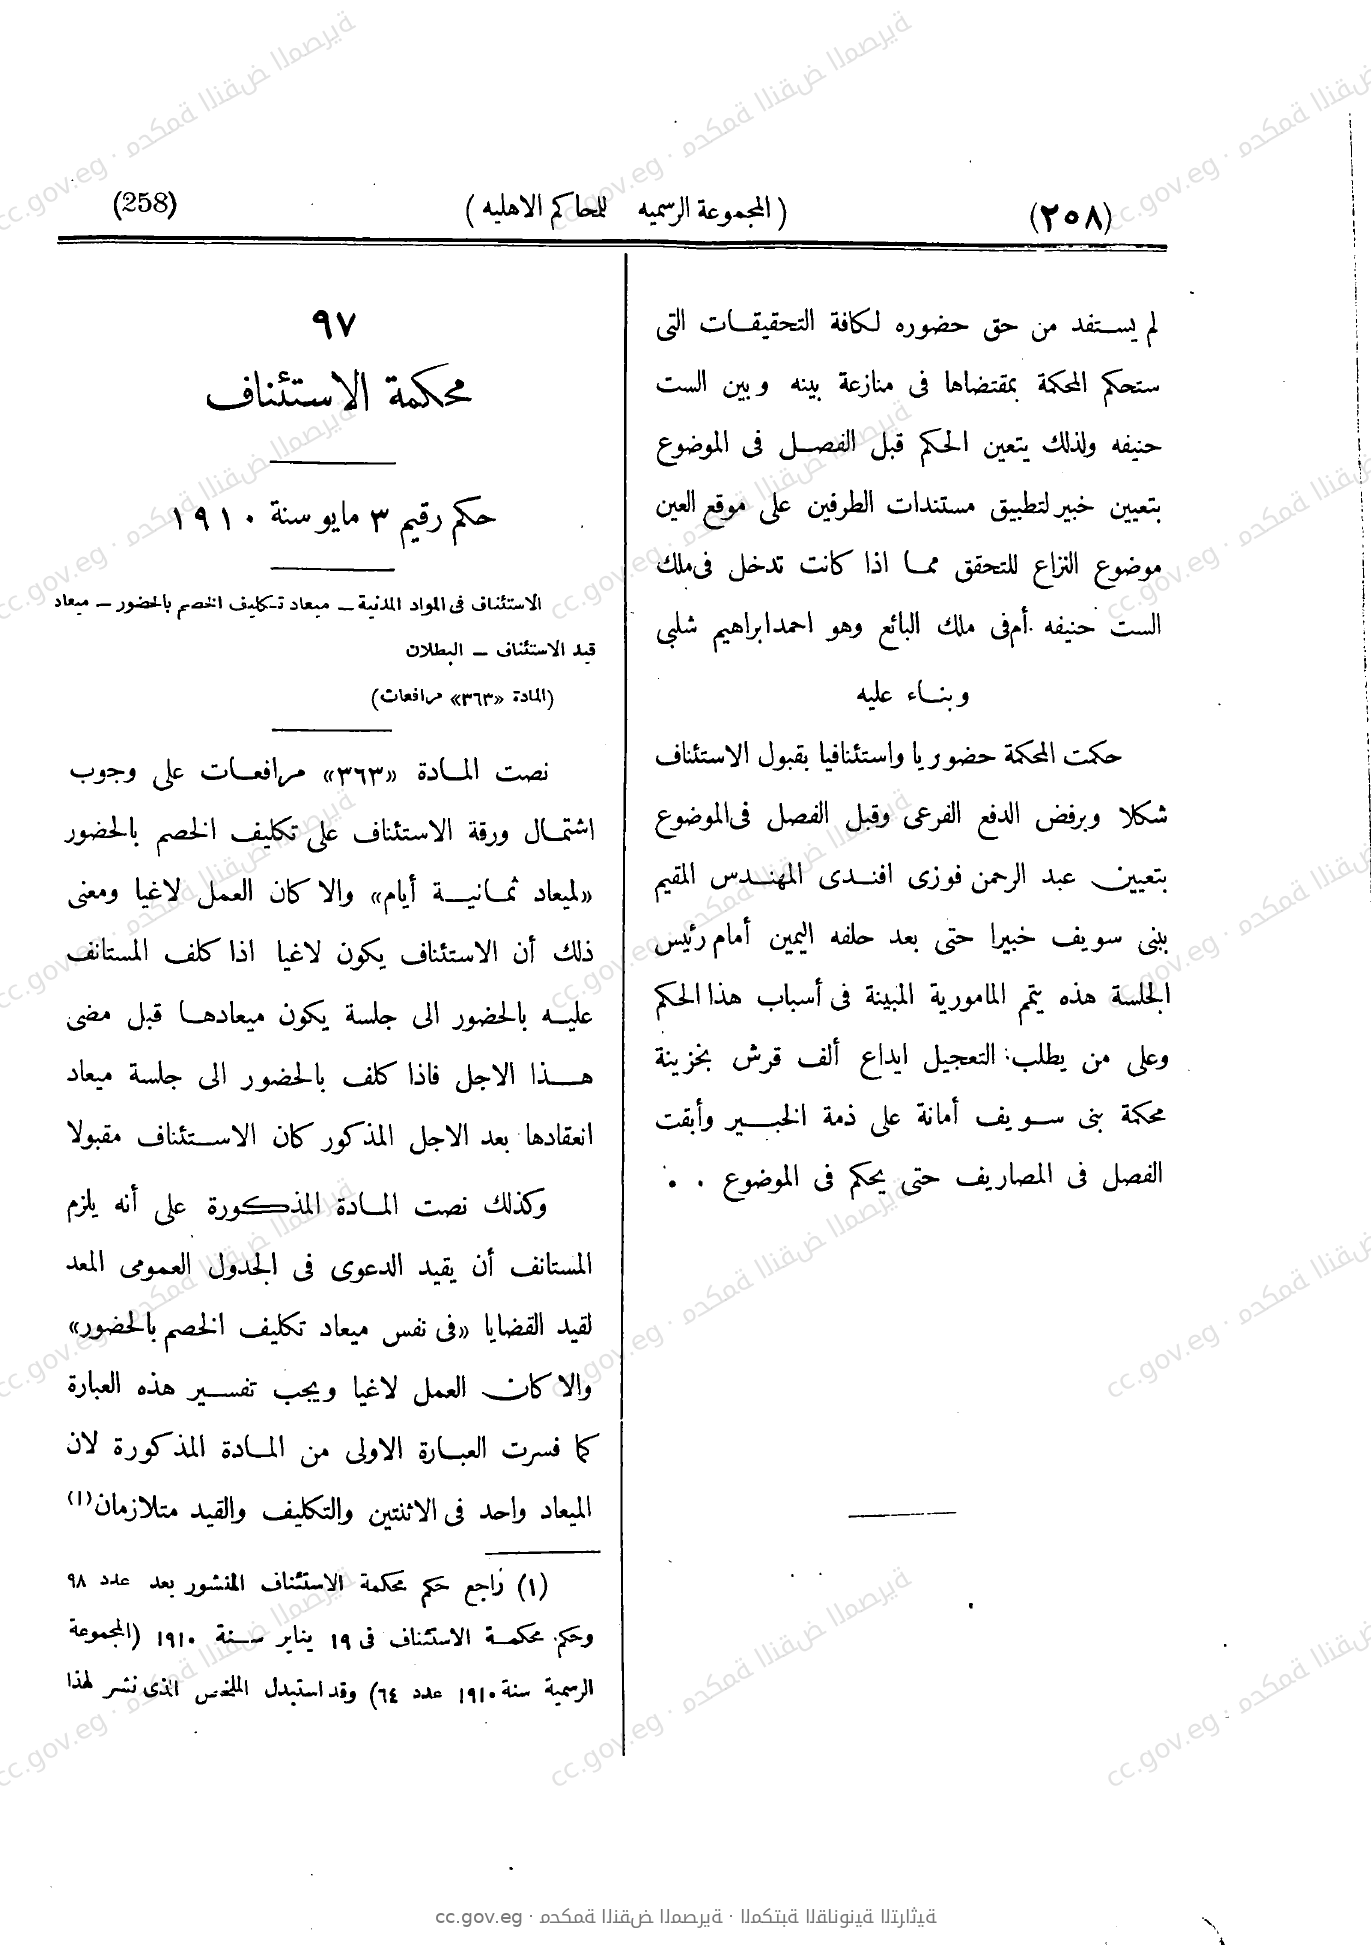 (٢٥٨)
(المجموعة الرسميه للمحاكم الاهليه)
(258)
لم يستفد من حق حضوره لكافة التحقيقات التى
ستحكم المحكمة بمقتضاها فى منازعة بينه وبين الست
حنيفه ولذلك يتعين الحكم قبل الفصل فى الموضوع
بتعيين خبير لتطبيق مستندات الطرفين على موقع العين
موضوع النزاع للتحقق مما اذا كانت تدخل فى ملك
الست حنيفه أم فى ملك البائع وهو احمد ابراهيم شلبى
وبناء عليه
حكمت المحكمة حضوريا واستئنافيا بقبول الاستئناف
شكلا وبرفض الدفع الفرعى وقبل الفصل فى الموضوع
بتعيين عبد الرحمن فوزى افندى المهندس المقيم
ببنى سويف خبيرا حتى بعد حلفه اليمين أمام رئيس
الجلسة هذه يتمم المامورية المبينة فى أسباب هذا الحكم
وعلى من يطلب التعجيل ايداع ألف قرش بخزينة
محكمة بنى سويف أمانة على ذمة الخبير وأبقت
الفصل فى المصاريف حتى يحكم فى الموضوع . .
٩٧
محكمة الاستئناف
حكم رقيم ٣ مايو سنة ١٩١٠
الاستئناف فى المواد المدنية – ميعاد تكليف الخصم بالحضور – ميعاد
قيد الاستئناف – البطلان
(المادة «٣٦٣» مرافعات)
نصت المادة «٣٦٣» مرافعات على وجوب
اشتمال ورقة الاستئناف على تكليف الخصم بالحضور
«لميعاد ثمانية أيام» والا كان العمل لاغيا ومعنى
ذلك أن الاستئناف يكون لاغيا اذا كلف المستانف
عليه بالحضور الى جلسة يكون ميعادها قبل مضى
هذا الاجل فاذا كلف بالحضور الى جلسة ميعاد
انعقادها بعد الاجل المذكور كان الاستئناف مقبولا
وكذلك نصت المادة المذكورة على أنه يلزم
المستانف أن يقيد الدعوى فى الجدول العمومى المعد
لقيد القضايا «فى نفس ميعاد تكليف الخصم بالحضور»
والا كان العمل لاغيا ويجب تفسير هذه العبارة
كما فسرت العبارة الاولى من المادة المذكورة لان
الميعاد واحد فى الاثنتين والتكليف والقيد متلازمان(١)
(١) راجع حكم محكمة الاستئناف المنشور بعد عدد ٩٨
وحكم محكمة الاستئناف فى ١٩ يناير سنة ١٩١٠ (المجموعة
الرسمية سنة ١٩١٠ عدد ٦٤) وقد استبدل الملخص الذى نشر لهذا
cc.gov.eg · محكمة النقض المصرية · المكتبة القانونية التراثية